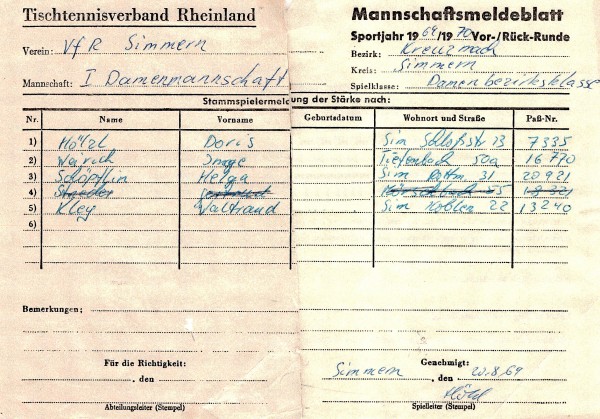 Tischtennisverband Rheinland
Mannschaftsmeldeblatt
Sportjahr 1969/1970 Vor-/Rück-Runde
Verein: VfR Simmern
Bezirk: Kreuznach
Kreis: Simmern
Mannschaft: I Damenmannschaft
Spielklasse: Damenbezirksklasse
Stammspielermeldung der Stärke nach:
Nr. Name Vorname Geburtsdatum Wohnort und Straße Paß-Nr.
1) Hötzl Doris Sim Schloßstr 13 7335
2) Warich Inge Tiefenbach 50a 16770
3) Schöpflin Helga Sim 31 20921
4) 18321
5) Kley Waltraud Sim Koblen 22 13240
6)
Bemerkungen:
Für die Richtigkeit:
, den
Abteilungsleiter (Stempel)
Genehmigt:
Simmern, den 20.8.69
Hötzl
Spielleiter (Stempel)